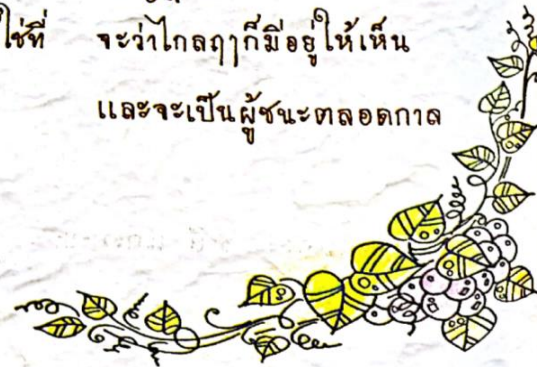 ใช่ที่ จะว่าไกลฤๅก็มีอยู่ให้เห็น
และจะเป็นผู้ชนะตลอดกาล